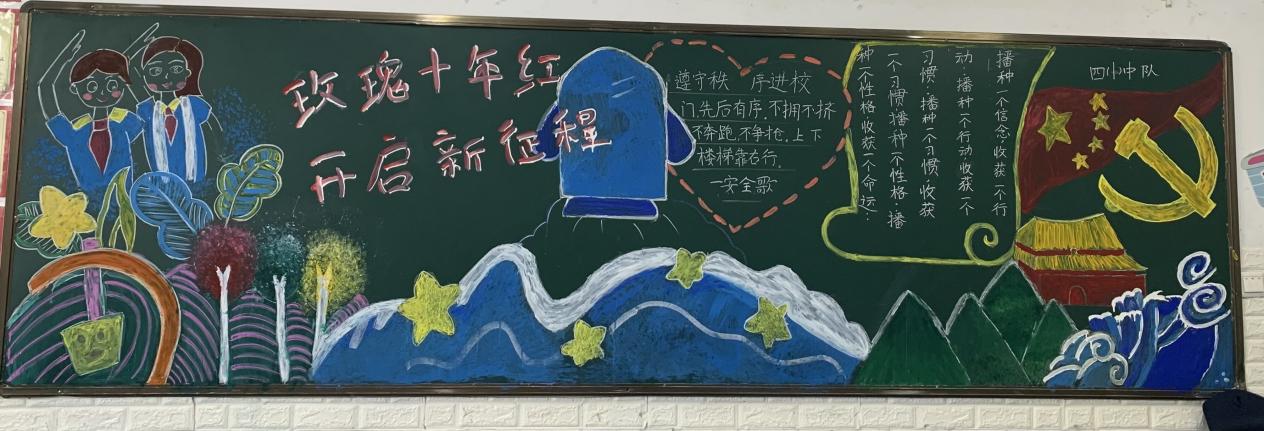 玫瑰十年红
开启新征程
遵守秩 序进校
门,先后有序,不拥不挤
不奔跑,不争抢,上下
楼梯靠右行.
—安全歌
播种一个信念·收获一个行
动·播种一个行动收获一个
习惯·播种一个习惯·收获
一个习惯·播种一个性格·播
种一个性格收获一个命运·
四(1)中队